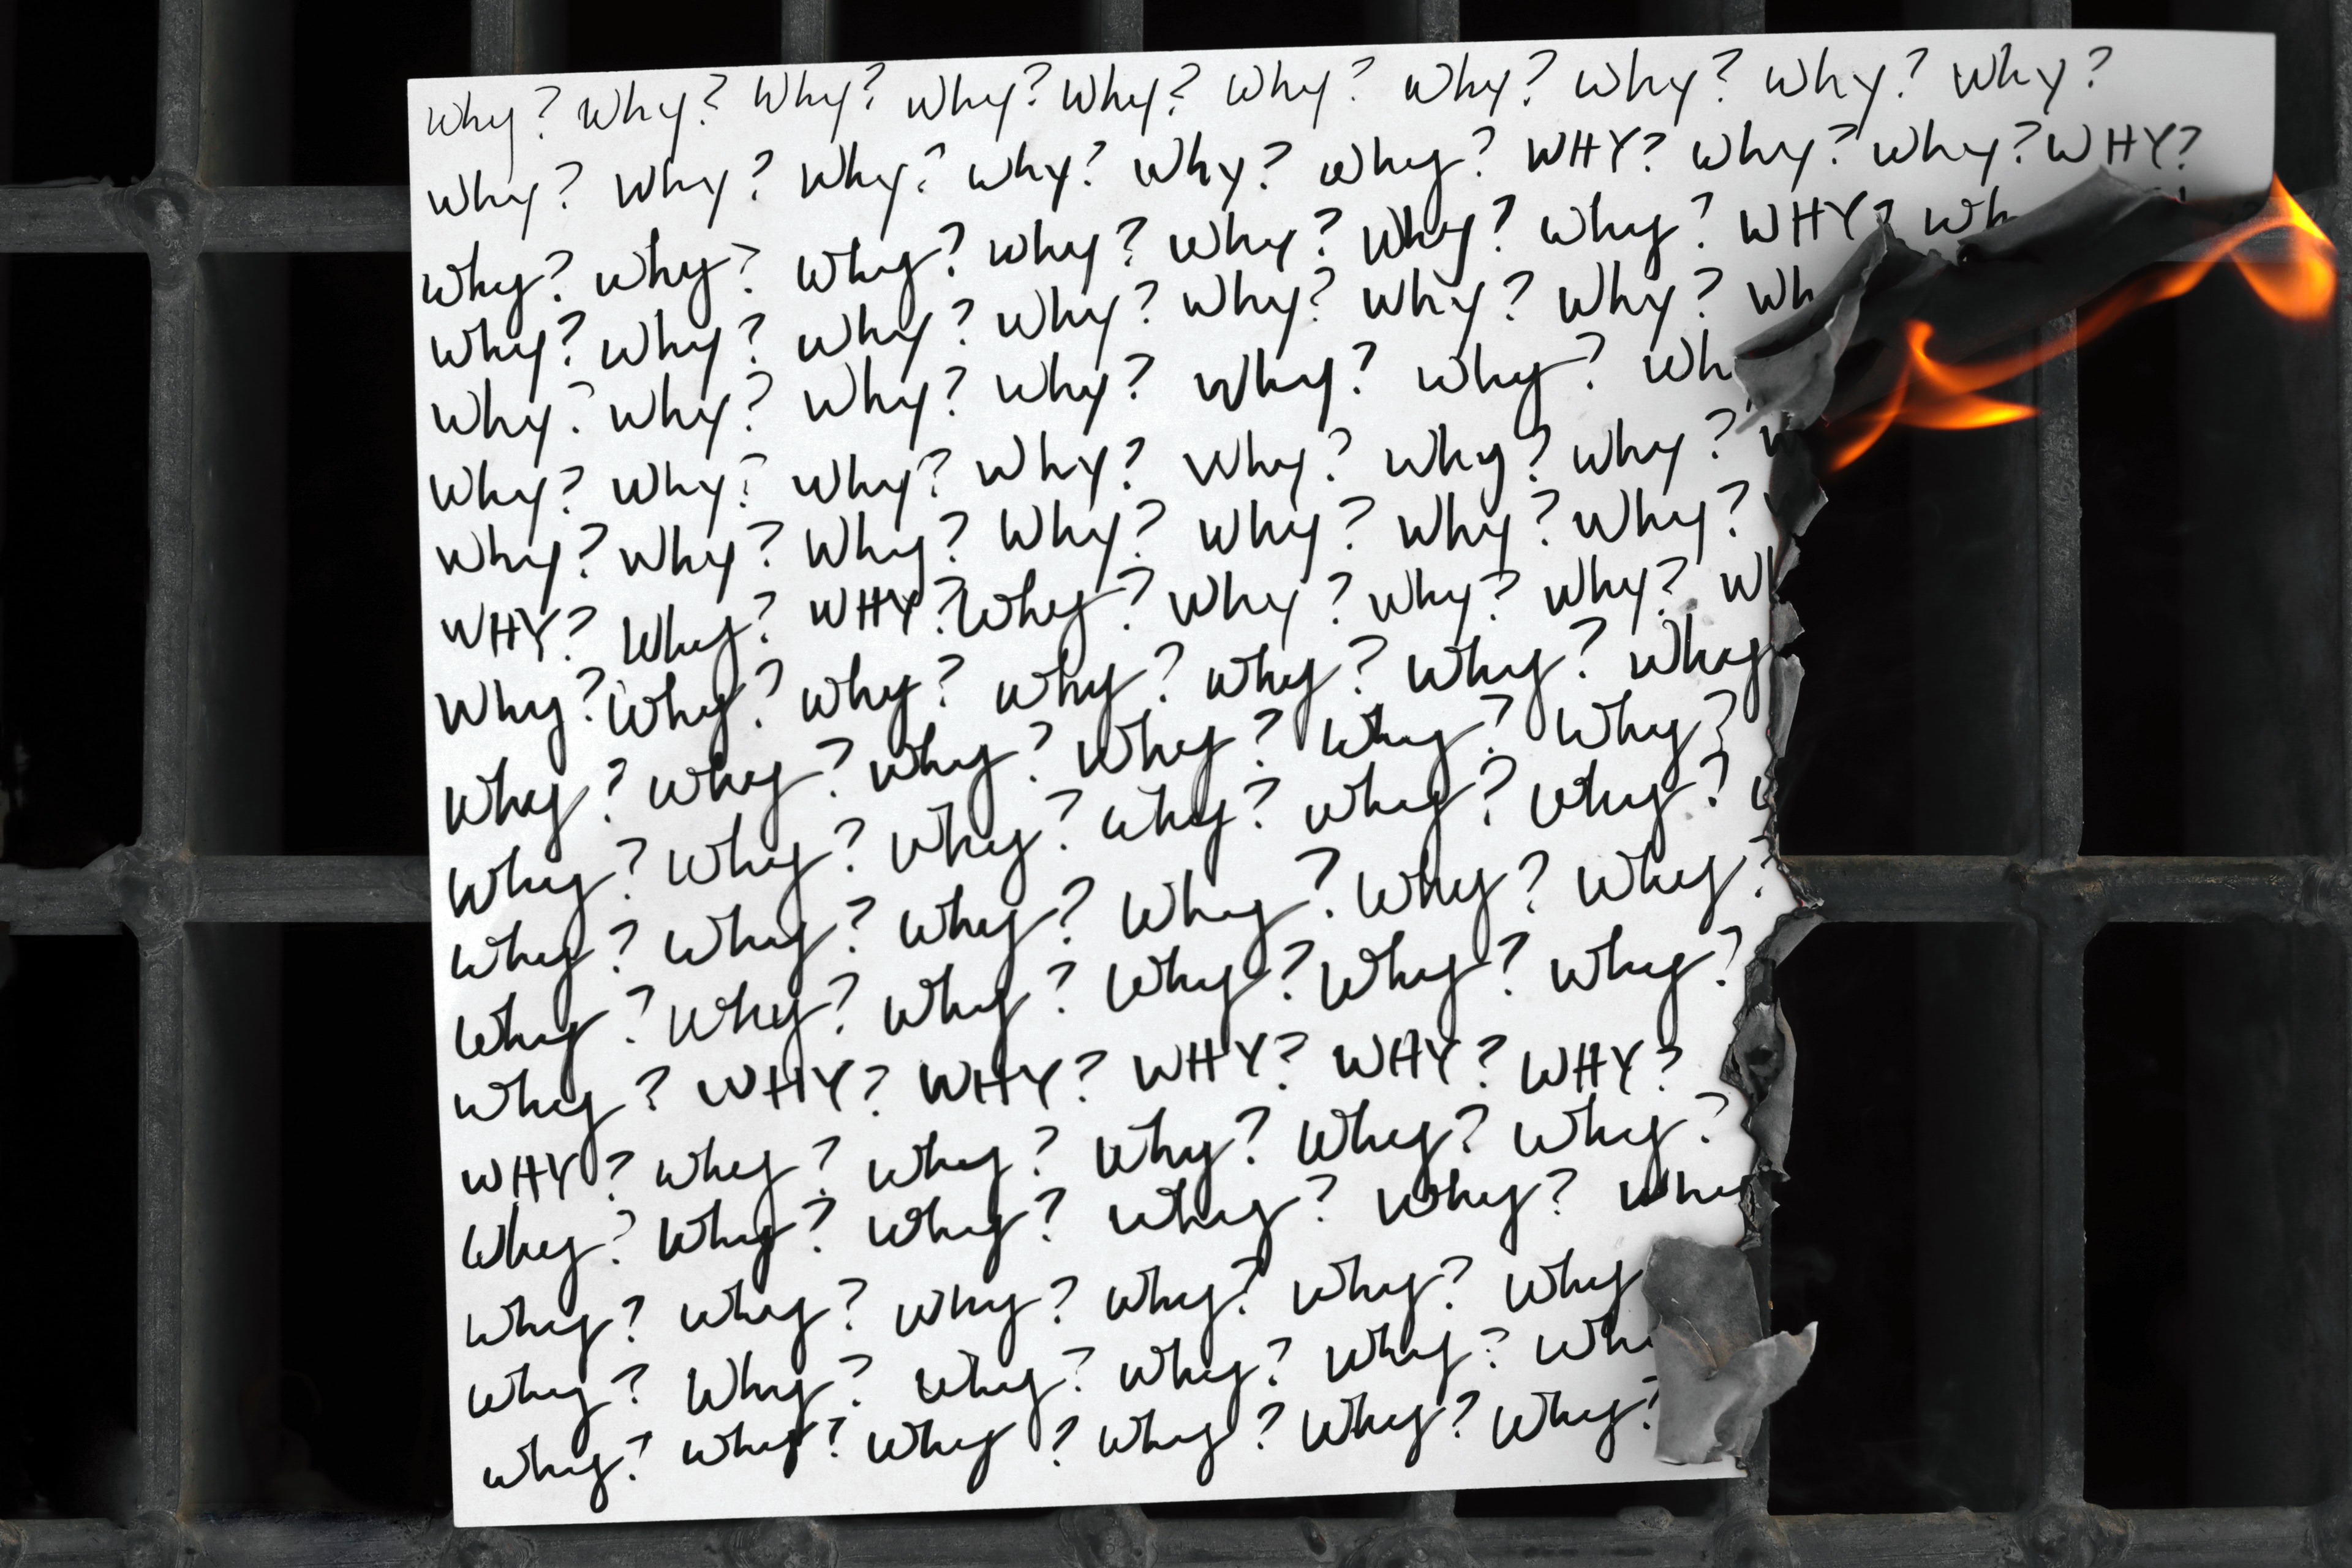 Why? Why? Why? Why? Why? Why? Why? Why? Why? Why?
Why? Why? Why? Why? Why? Why? WHY? Why? Why? WHY?
Why? Why? Why? Why? Why? Why? Why? WHY? Wh
Why? Why? Why? Why? Why? Why? Why? Wh
Why? Why? Why? Why? Why? Why? Wh
Why? Why? Why? Why? Why? Why? Why?
Why? Why? Why? Why? Why? Why? Why?
WHY? Why? WHY? Why? Why? Why? Why? Wh
Why? Why? Why? Why? Why? Why? Why
Why? Why? Why? Why? Why? Why?
Why? Why? Why? Why? Why? Why?
Why? Why? Why? Why? Why? Why?
Why? Why? Why? Why? Why? Why?
Why? WHY? WHY? WHY? WHY? WHY?
WHY? Why? Why? Why? Why? Why?
Why? Why? Why? Why? Why? Why
Why? Why? Why? Why? Why? Why
Why? Why? Why? Why? Why? Wh
Why? Why? Why? Why? Why? Why?